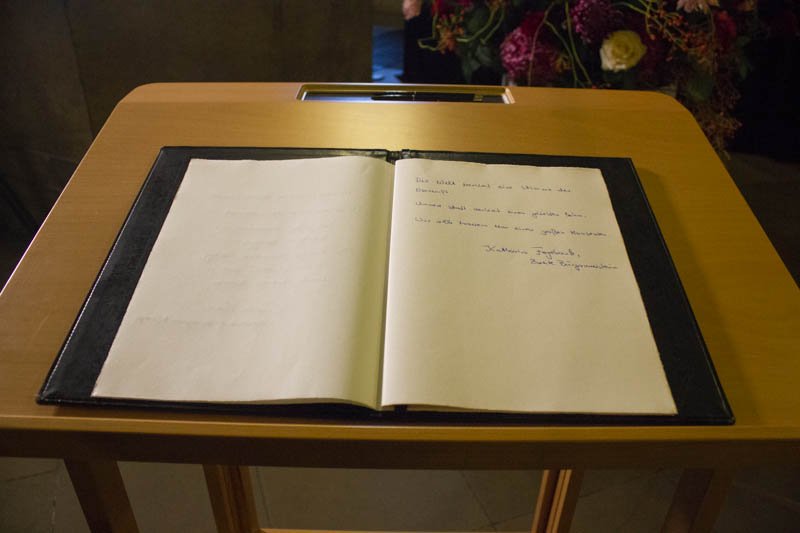 Die Welt verliert eine Stimme der
Vernunft.
Unsere Stadt verliert einen
Wir alle trauern um einen großen Menschen
Katharina Fegebank,
Zweite Bürgermeisterin